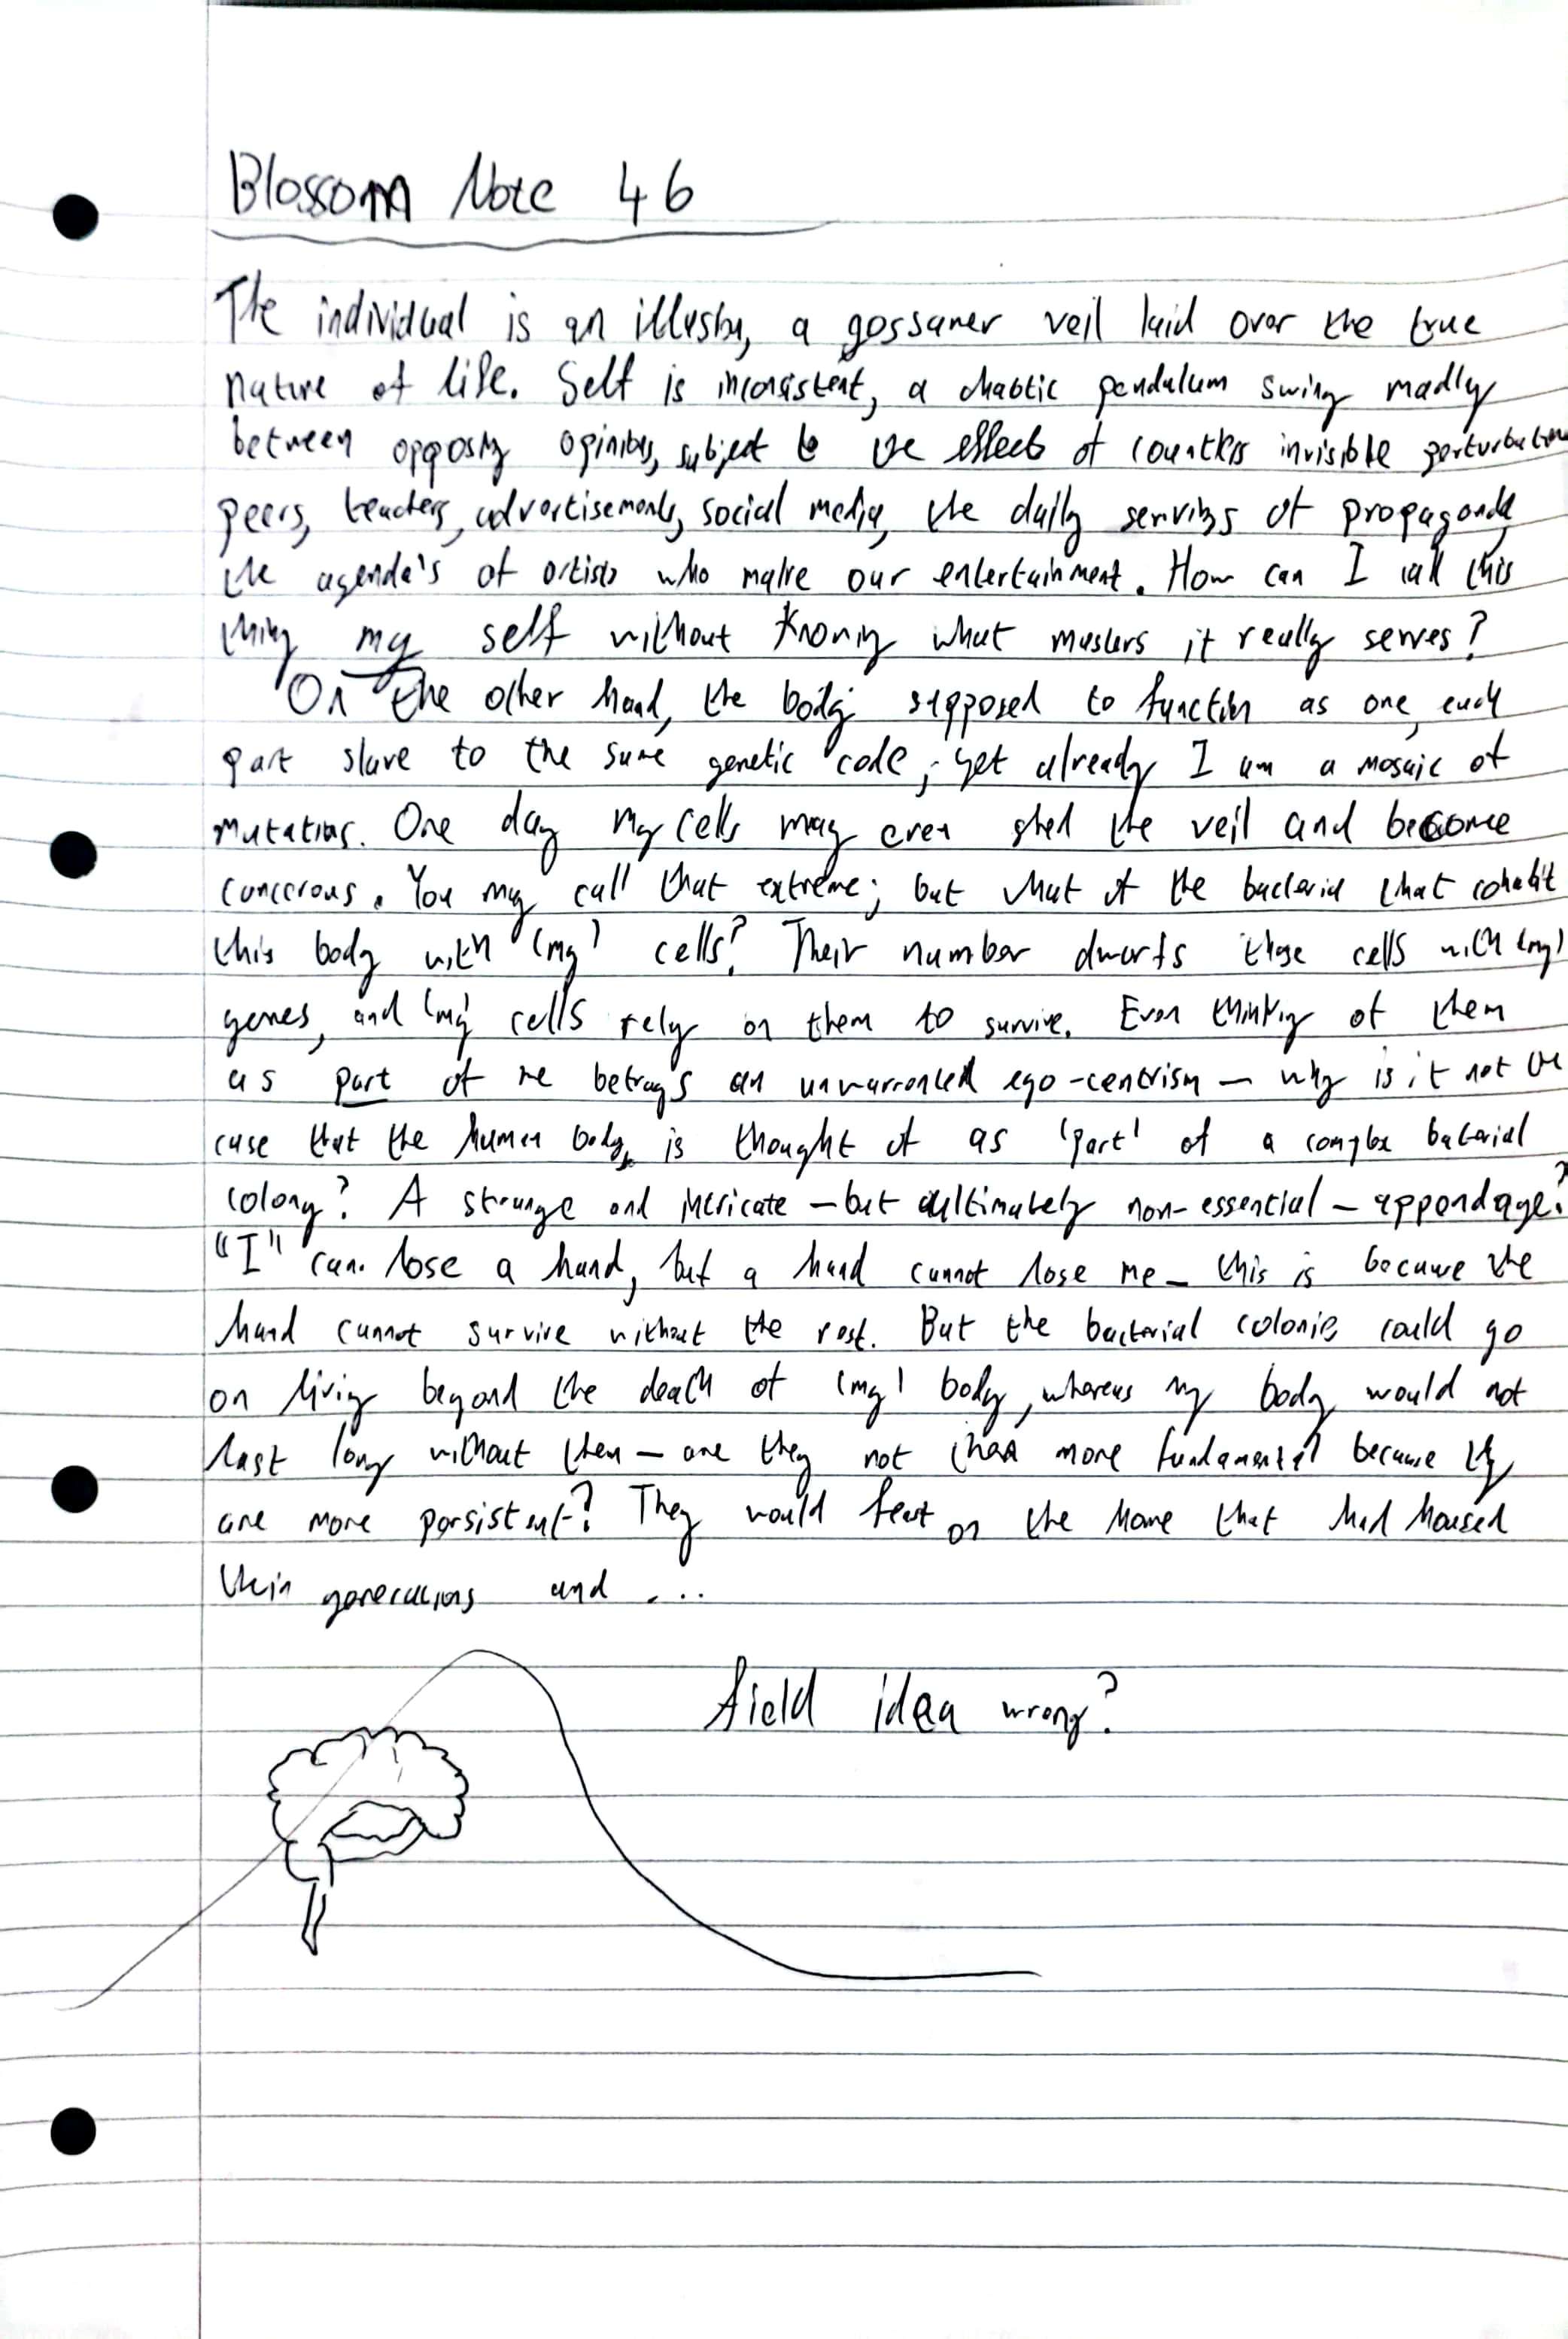 Blossom Note 46
The individual is an illusion, a gossamer veil laid over the true
nature of life. Self is inconsistent, a chaotic pendulum swing madly
between opposing opinions, subject to the effects of countless invisible perturbations
peers, teachers, advertisements, social media, the daily servings of propaganda,
the agenda's of artists who make our entertainment. How can I call this
thing my self without knowing what masters it really serves?
On the other hand, the body supposed to function as one, each
part slave to the same genetic code; yet already I am a mosaic of
mutations. One day my cells may even shed the veil and become
cancerous. You may call that extreme; but what of the bacteria that cohabit
this body with 'my' cells? Their number dwarfs those cells with 'my'
genes, and 'my' cells rely on them to survive. Even thinking of them
as part of me betrays an unwarranted ego-centrism – why is it not the
case that the human body is thought of as 'part' of a complex bacterial
colony? A strange and intricate – but ultimately non-essential – appendage?
"I" can lose a hand, but a hand cannot lose me – this is because the
hand cannot survive without the rest. But the bacterial colonies could go
on living beyond the death of 'my' body, whereas my body would not
last long without them – are they not then more fundamental because they
are more persistent? They would feast on the home that had housed
their generations and ...
field idea wrong?